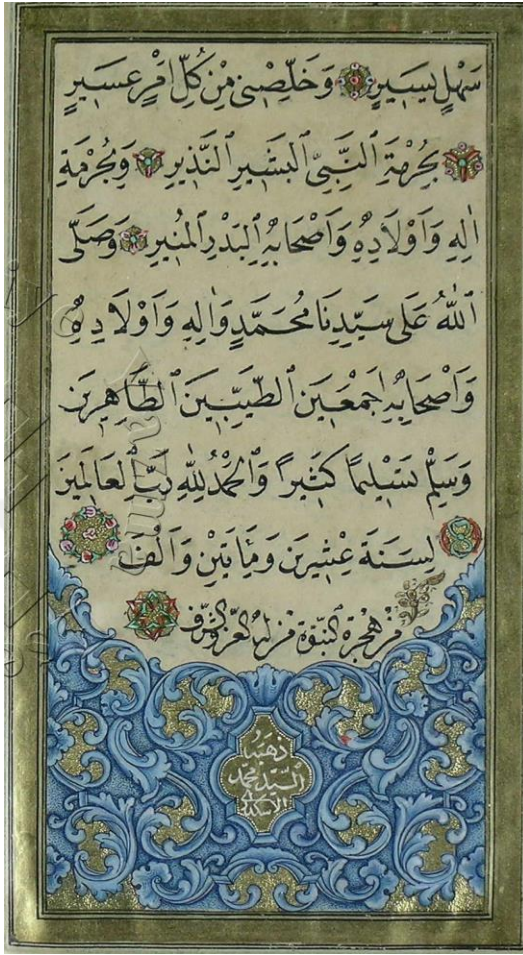 سَهْلٍ يَسَيرٍ وَخَلِّصْنِى مِنْ كُلِّ اَمْرٍ عَسَيرٍ
بِحُرْمَةِ ٱلنَّبِىِّ ٱلبَشَيرِ ٱلنَّذَيرِ وَبِحُرْمَةِ
اٰلِهِ وَاَوْلَادِهِ وَاَصْحَابِهِ ٱلبَدْرِ ٱلمُنَيرِ وَصَلَّى
ٱللّٰهُ عَلٰى سَيِّدِنَا مُحَمَّدٍ وَاٰلِهِ وَاَوْلَادِهِ
وَاَصْحَابِهِ اَجْمَعَينَ ٱلطَّيِّبَينَ ٱلطَّاهِرَينَ
وَسَلِّمْ تَسْلَيمًا كَثَيرًا وَٱلْحَمْدُ لِلّٰهِ رَبِّ ٱلعَالَمَينَ
لِسَنَةَ عِشْرَينَ وَمِأَتَيْنِ وَاَلْفَ
مِنْ هِجْرَةِ ٱلنُّبُوَّةِ مَنْ لَهُ ٱلعِزُّ وَٱلشَّرَفُ
ذَهَّبَهُ
ٱلسَّيِّد مُحَمَّد